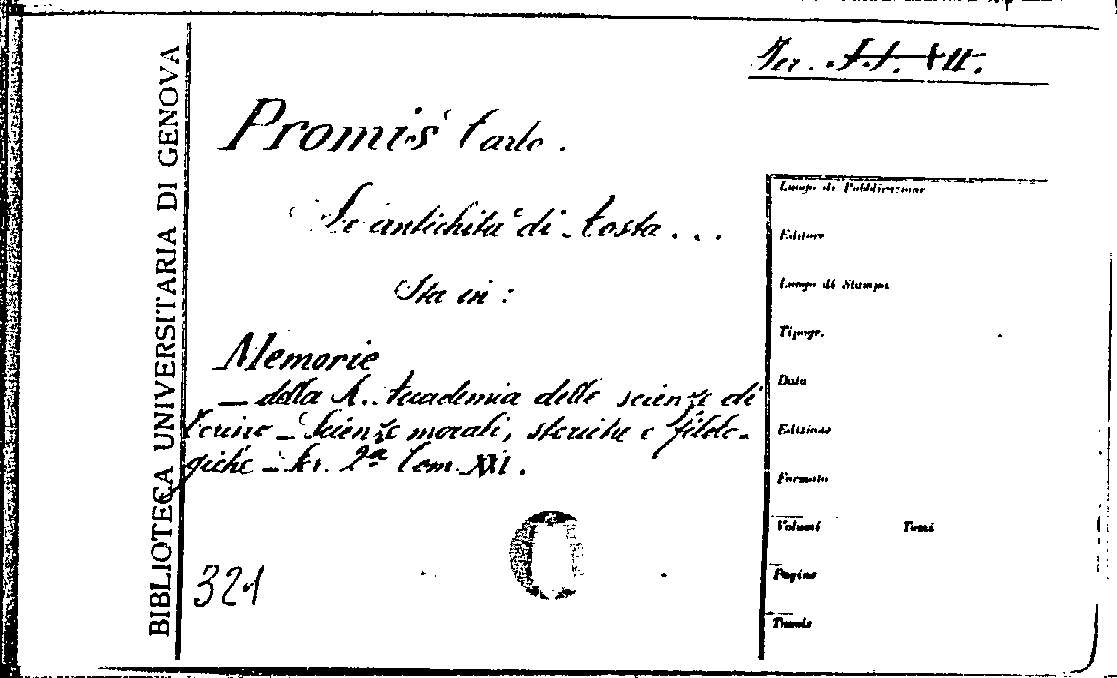 Per.
Promis Carlo.
Le antichità di Aosta...
Sta in:
Memorie
— della R. Accademia delle scienze di
Torino — Scienze morali, storiche e filolo-
giche — Ser. 2ª Tom. XXI.
321
BIBLIOTECA UNIVERSITARIA DI GENOVA
Luogo di Pubblicazione
Editore
Luogo di Stampa
Tipogr.
Data
Edizione
Formato
Volumi Tomi
Pagine
Tavole